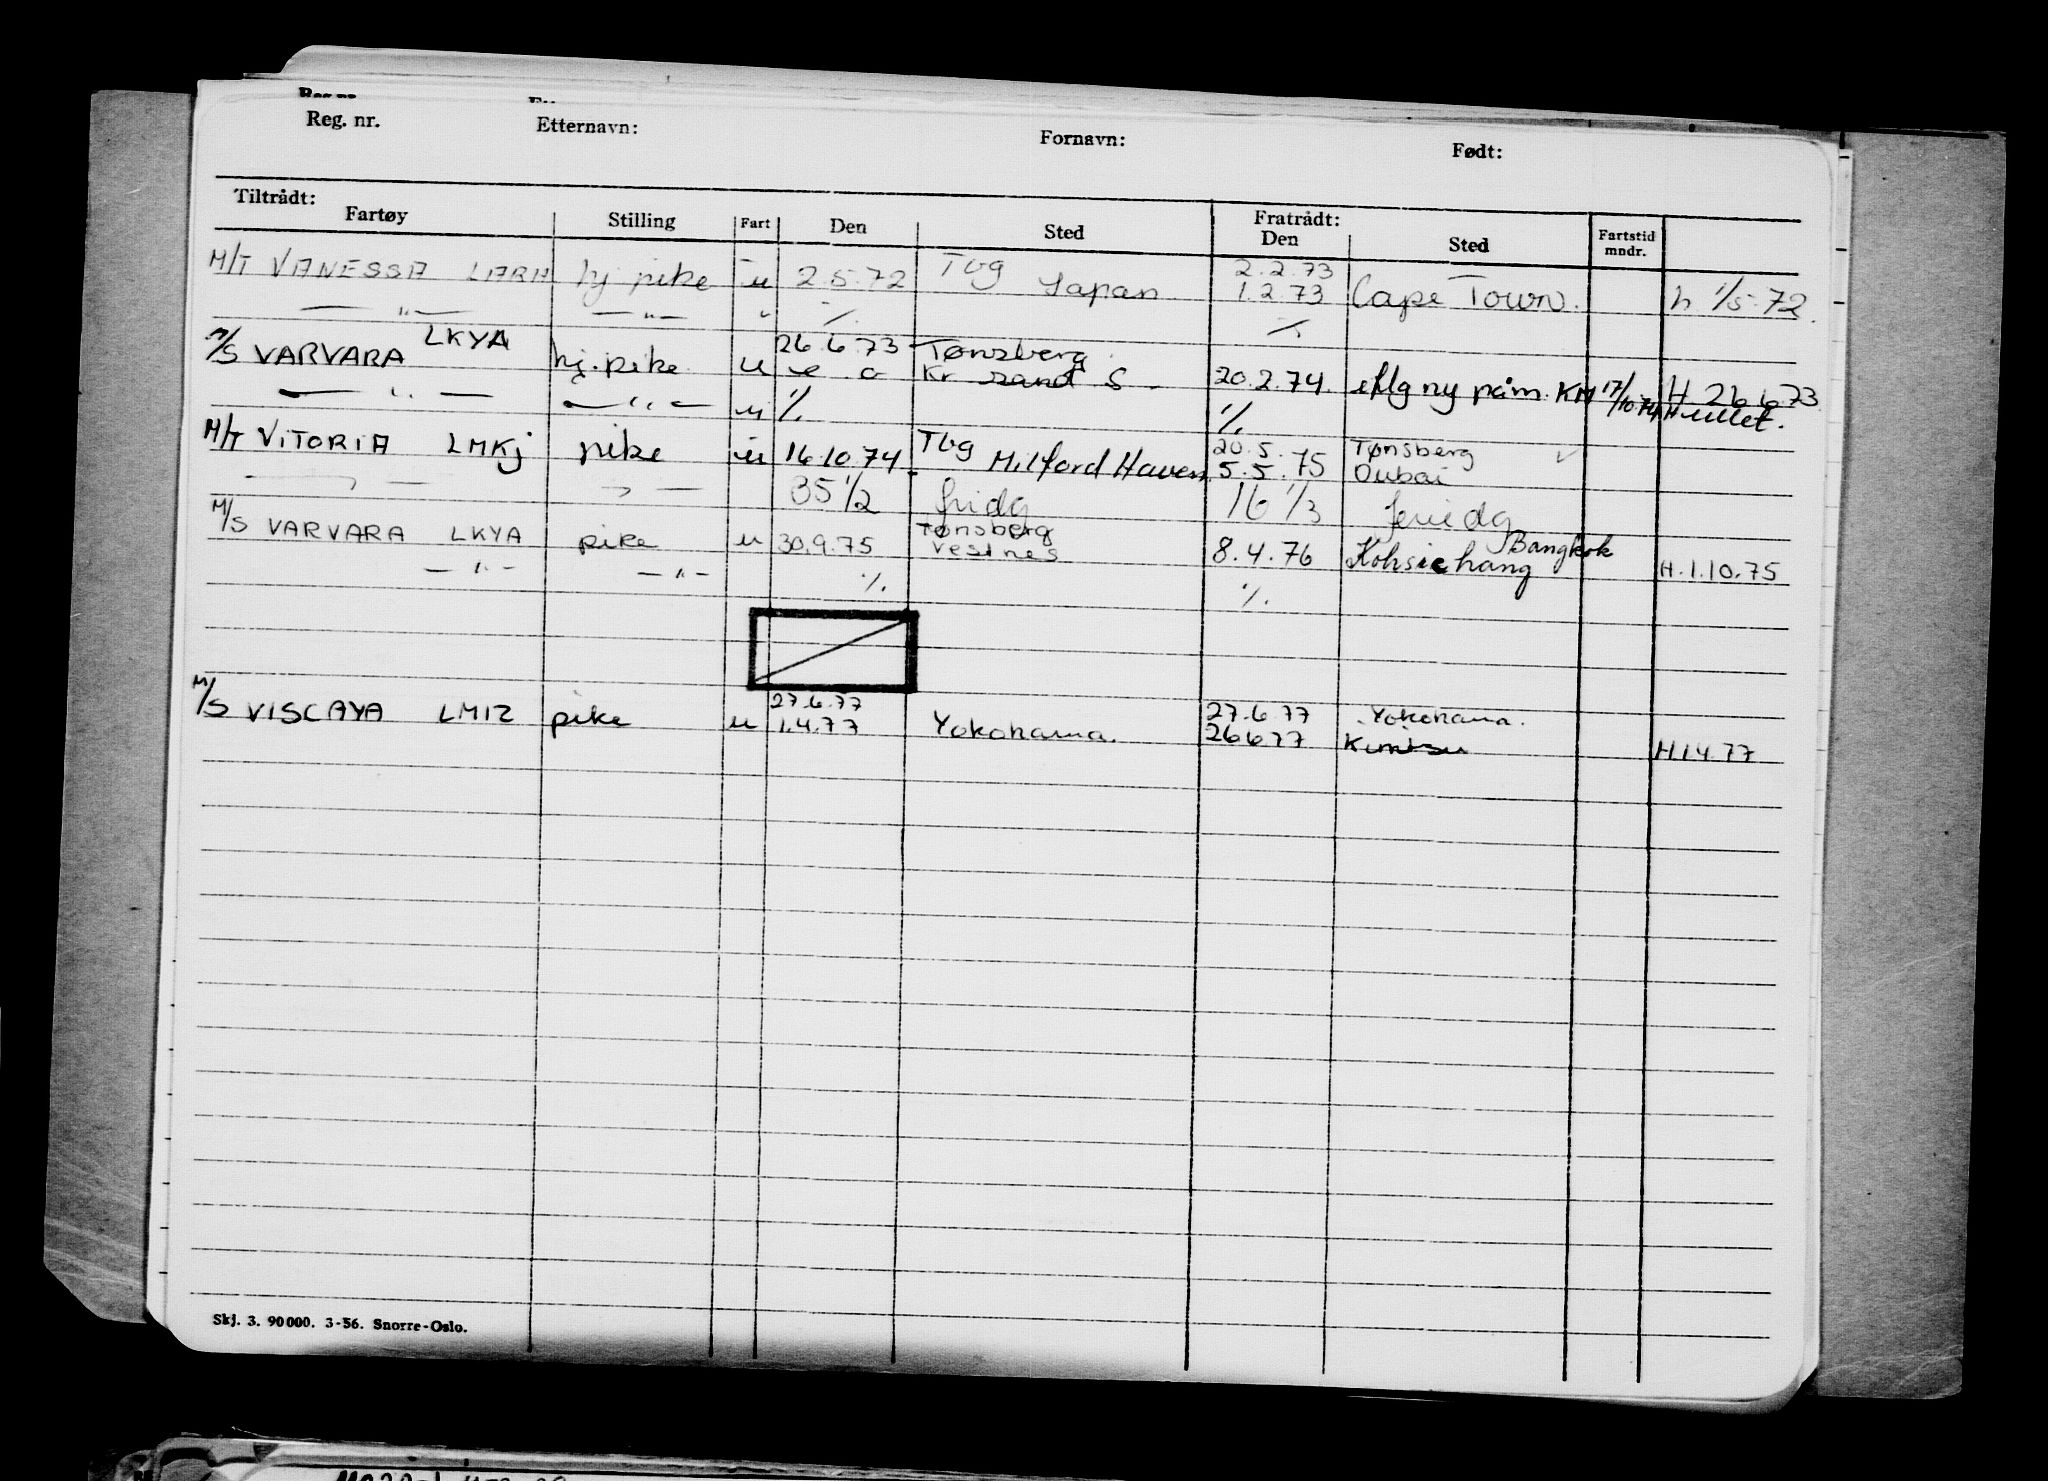 Reg. nr. Etternavn: Fornavn: Født:
Tiltrådt: Fratrådt:
Fartøy Stilling Fart Den Sted Den Sted Fartstid mndr.
Tbg 2.2.73
M/T VANESSA LARA hj pike u 2.5.72 Japan 1.2.73 Cape Town. h 1/5-72.
— " — — " — " ⁒ ⁒
LKYA 26.6.73 Tønsberg
M/S VARVARA hj. pike u Kr sand S - 20.2.74. ny påm. KM 17/10.74 H 26.6.73
— " — — " — u ⁒ ⁒ H-ullet.
Tbg 20.5. Tønsberg
M/T VITORIA LMKJ pike u 16.10.74 Milford Haven 5.5.75 Dubai
— " — — " — 35 1/2 fridg 16 1/3 feriedg
Tønsberg Bangkok
M/S VARVARA LKYA pike u 30.9.75 Vestnes 8.4.76 Kohsichang H.1.10.75
— " — — " — ⁒ ⁒
27.6.77 27.6.77 Yokohama.
M/S VISCAYA LMIZ pike u 1.4.77 Yokohama. 26.6.77 Kimitsu H.1.4.77
Skj. 3. 90 000. 3-56. Snorre-Oslo.